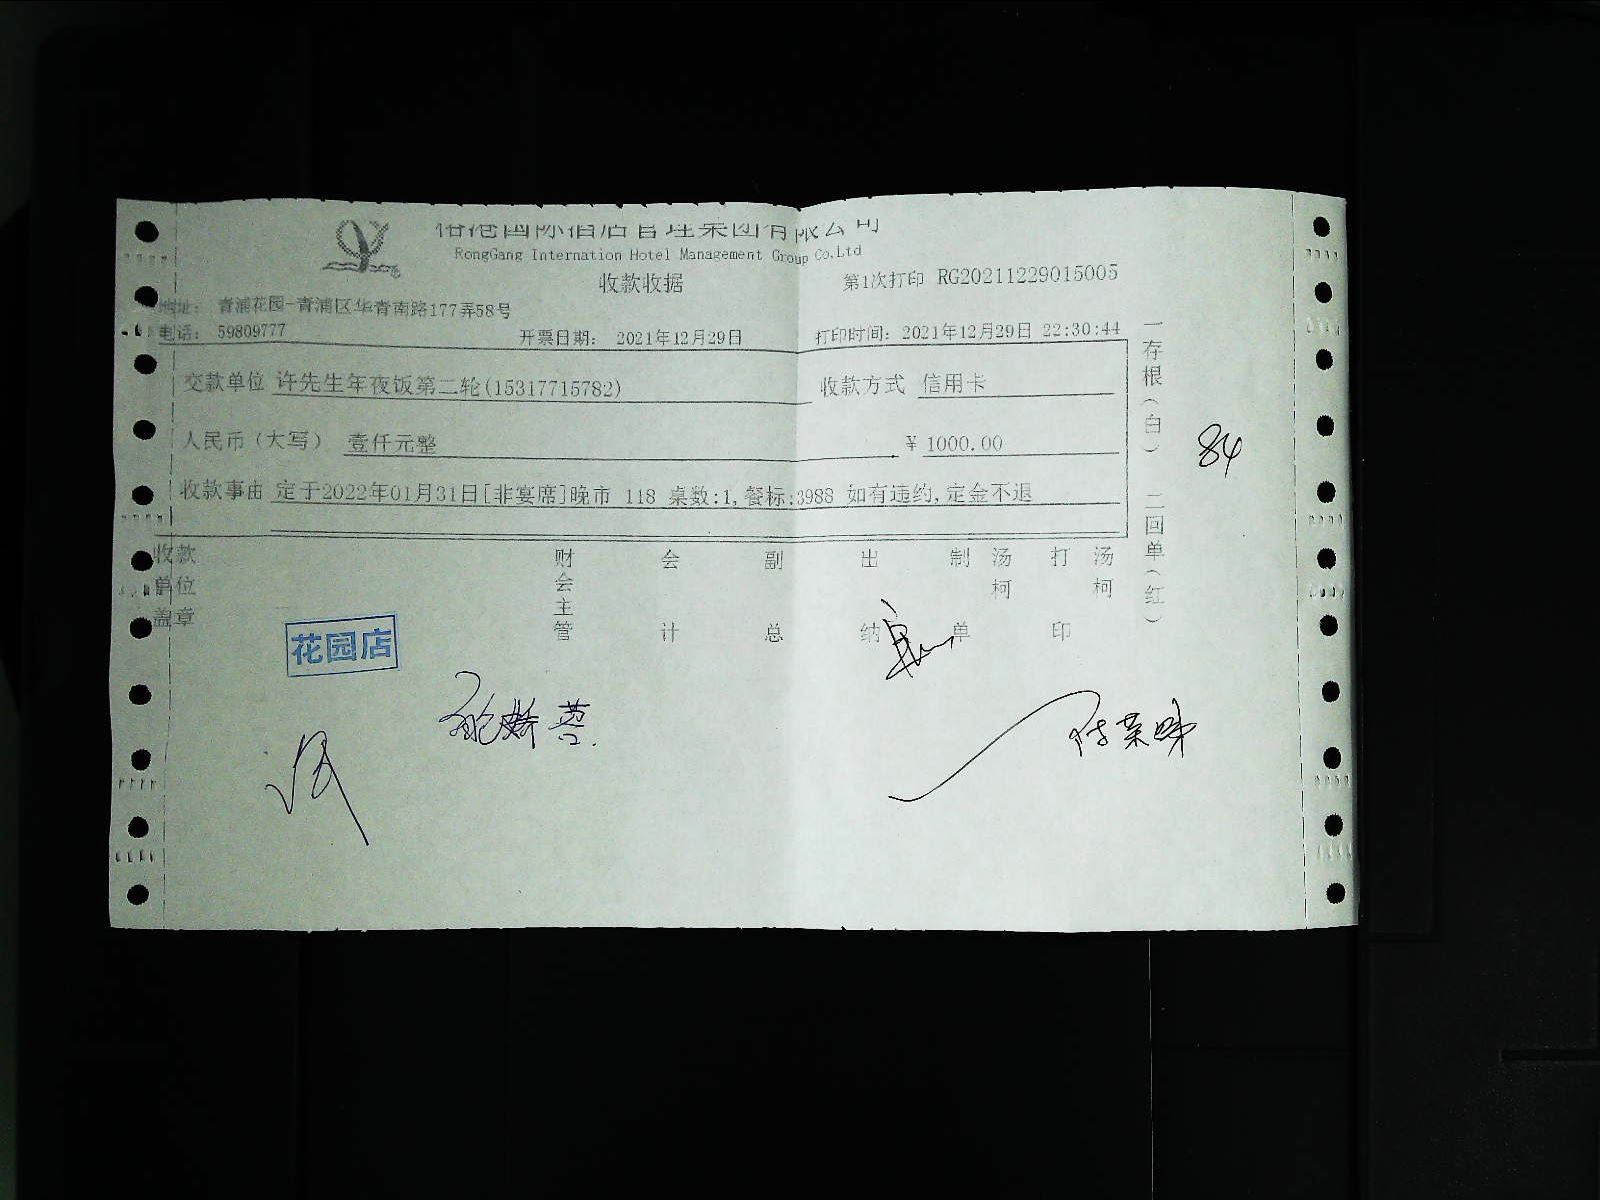 港国际酒店管理集团有限公司
RongGang Internation Hotel Management Group Co.Ltd
收款收据
第1次打印 RG20211229015005
地址: 青浦花园-青浦区华青南路177弄58号
电话: 59809777
开票日期: 2021年12月29日
打印时间: 2021年12月29日 22:30:44
交款单位 许先生年夜饭第二轮(15317715782)
收款方式 信用卡
人民币(大写) 壹仟元整
¥ 1000.00
收款事由 定于2022年01月31日[非宴席]晚市 118 桌数:1,餐标:3988 如有违约,定金不退
一存根(白) 二回单(红)
84
收款单位盖章
财会主管
会计
副总
出纳
制单
汤柯
打印
汤柯
花园店